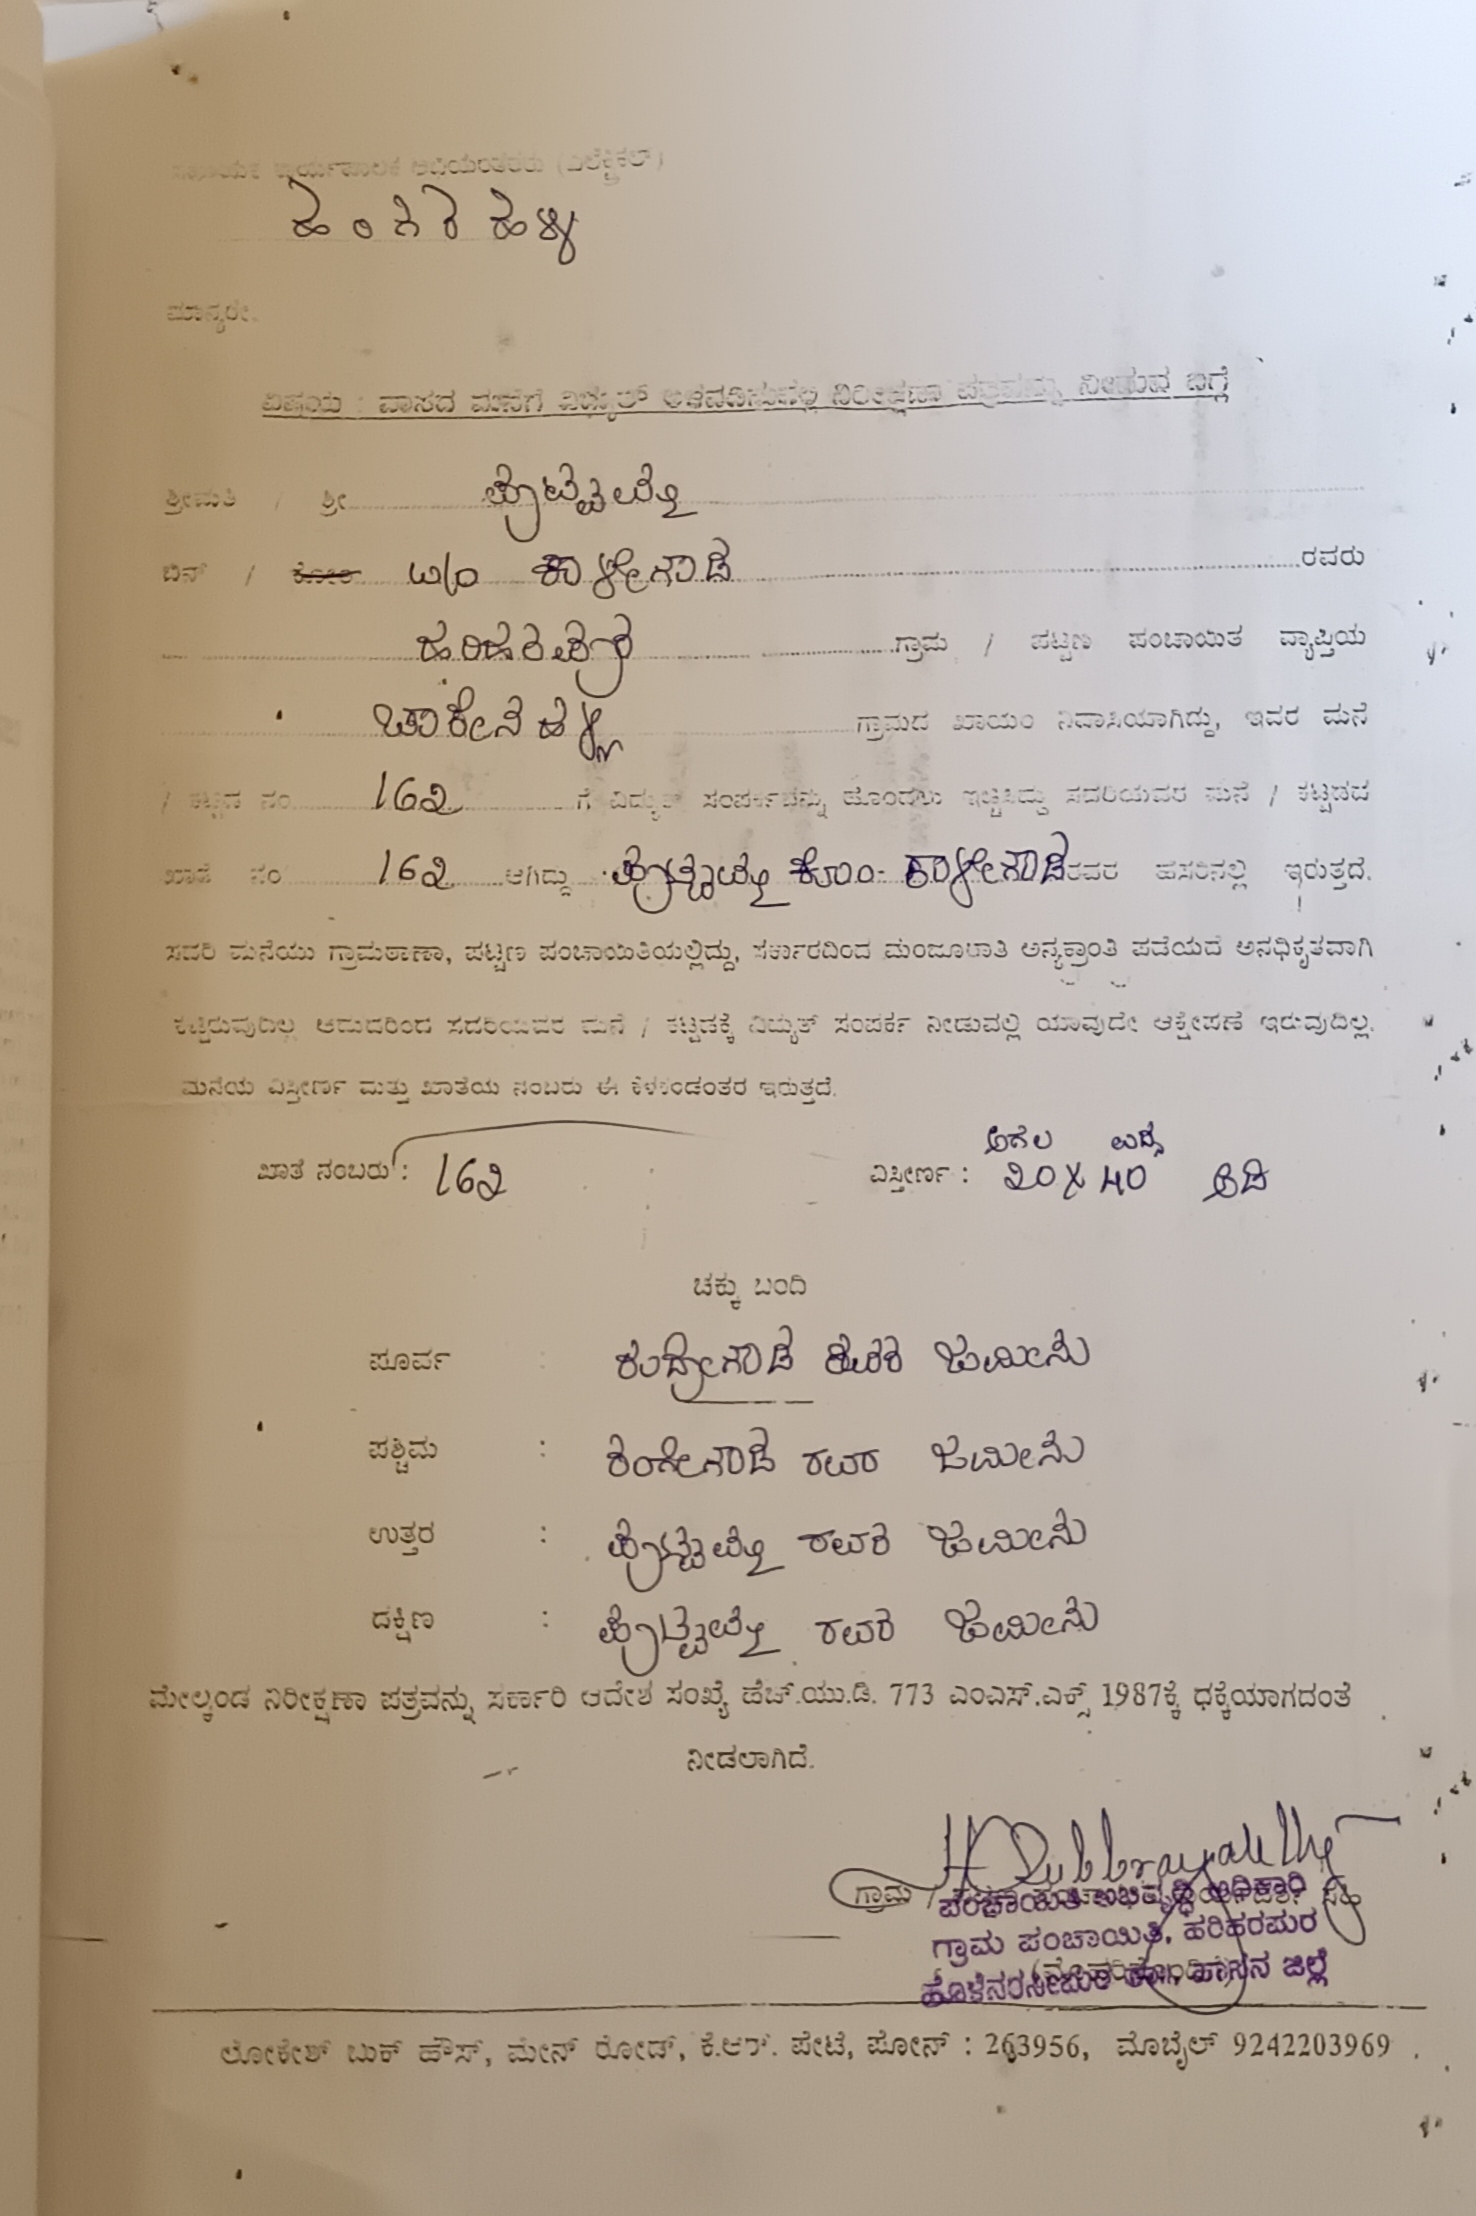 ಸಹಾಯಕ ಕಾರ್ಯಪಾಲಕ ಅಭಿಯಂತರರು (ಎಲೆಕ್ಟ್ರಿಕಲ್)
ಮಾನ್ಯರೇ,
ವಿಷಯ : ವಾಸದ ಮನೆಗೆ ವಿದ್ಯುತ್ ಅಳವಡಿಸುವಲ್ಲಿ ನಿರೀಕ್ಷಣಾ ಪತ್ರವನ್ನು ನೀಡುವ ಬಗ್ಗೆ
ಶ್ರೀಮತಿ / ಶ್ರೀ ಪುಟ್ಟಮ್ಮ
ಬಿನ್ / ಕೋಂ W/o ಕಾಳೇಗೌಡ ರವರು
ಹರಿಹರಪುರ ಗ್ರಾಮ / ಪಟ್ಟಣ ಪಂಚಾಯಿತ ವ್ಯಾಪ್ತಿಯ
ಚಾಕೇನಹಳ್ಳಿ ಗ್ರಾಮದ ಖಾಯಂ ನಿವಾಸಿಯಾಗಿದ್ದು, ಇವರ ಮನೆ
/ ಕಟ್ಟಡ ನಂ 162 ಗೆ ವಿದ್ಯುತ್ ಸಂಪರ್ಕವನ್ನು ಹೊಂದಲು ಇಚ್ಛಿಸಿದ್ದು ಸದರಿಯವರ ಮನೆ / ಕಟ್ಟಡದ
ಖಾತೆ ನಂ 162 ಆಗಿದ್ದು ಪುಟ್ಟಮ್ಮ ಕೋಂ ಕಾಳೇಗೌಡ ರವರ ಹೆಸರಿನಲ್ಲಿ ಇರುತ್ತದೆ.
ಸದರಿ ಮನೆಯು ಗ್ರಾಮಠಾಣಾ, ಪಟ್ಟಣ ಪಂಚಾಯಿತಿಯಲ್ಲಿದ್ದು, ಸರ್ಕಾರದಿಂದ ಮಂಜೂರಾತಿ ಅನ್ಯಕ್ರಾಂತಿ ಪಡೆಯದೆ ಅನಧಿಕೃತವಾಗಿ
ಕಟ್ಟಿರುವುದಿಲ್ಲ ಆದುದರಿಂದ ಸದರಿಯವರ ಮನೆ / ಕಟ್ಟಡಕ್ಕೆ ವಿದ್ಯುತ್ ಸಂಪರ್ಕ ನೀಡುವಲ್ಲಿ ಯಾವುದೇ ಆಕ್ಷೇಪಣೆ ಇರುವುದಿಲ್ಲ.
ಮನೆಯ ವಿಸ್ತೀರ್ಣ ಮತ್ತು ಖಾತೆಯ ನಂಬರು ಈ ಕೆಳಕಂಡಂತರ ಇರುತ್ತದೆ.
ಅಗಲ ಉದ್ದ
ಖಾತೆ ನಂಬರು : 162 ವಿಸ್ತೀರ್ಣ : 20 X 40 ಅಡಿ
ಚಕ್ಕು ಬಂದಿ
ಪೂರ್ವ : ರುದ್ರೇಗೌಡ ರವರ ಜಮೀನು
ಪಶ್ಚಿಮ : ರಂಗೇಗೌಡ ರವರ ಜಮೀನು
ಉತ್ತರ : ಪುಟ್ಟಮ್ಮ ರವರ ಜಮೀನು
ದಕ್ಷಿಣ : ಪುಟ್ಟಮ್ಮ ರವರ ಜಮೀನು
ಮೇಲ್ಕಂಡ ನಿರೀಕ್ಷಣಾ ಪತ್ರವನ್ನು ಸರ್ಕಾರಿ ಆದೇಶ ಸಂಖ್ಯೆ ಹೆಚ್.ಯು.ಡಿ. 773 ಎಂಎಸ್.ಎಕ್ಸ್ 1987ಕ್ಕೆ ಧಕ್ಕೆಯಾಗದಂತೆ
ನೀಡಲಾಗಿದೆ.
ಗ್ರಾಮ /
ಪಂಚಾಯಿತಿ ಅಭಿವೃದ್ಧಿ ಅಧಿಕಾರಿ
ಗ್ರಾಮ ಪಂಚಾಯಿತಿ, ಹರಿಹರಪುರ
ಹೊಳೆನರಸೀಪುರ ತಾ. ಹಾಸನ ಜಿಲ್ಲೆ
ಲೋಕೇಶ್ ಬುಕ್ ಹೌಸ್, ಮೇನ್ ರೋಡ್, ಕೆ.ಆರ್. ಪೇಟೆ, ಫೋನ್ : 263956, ಮೊಬೈಲ್ 9242203969